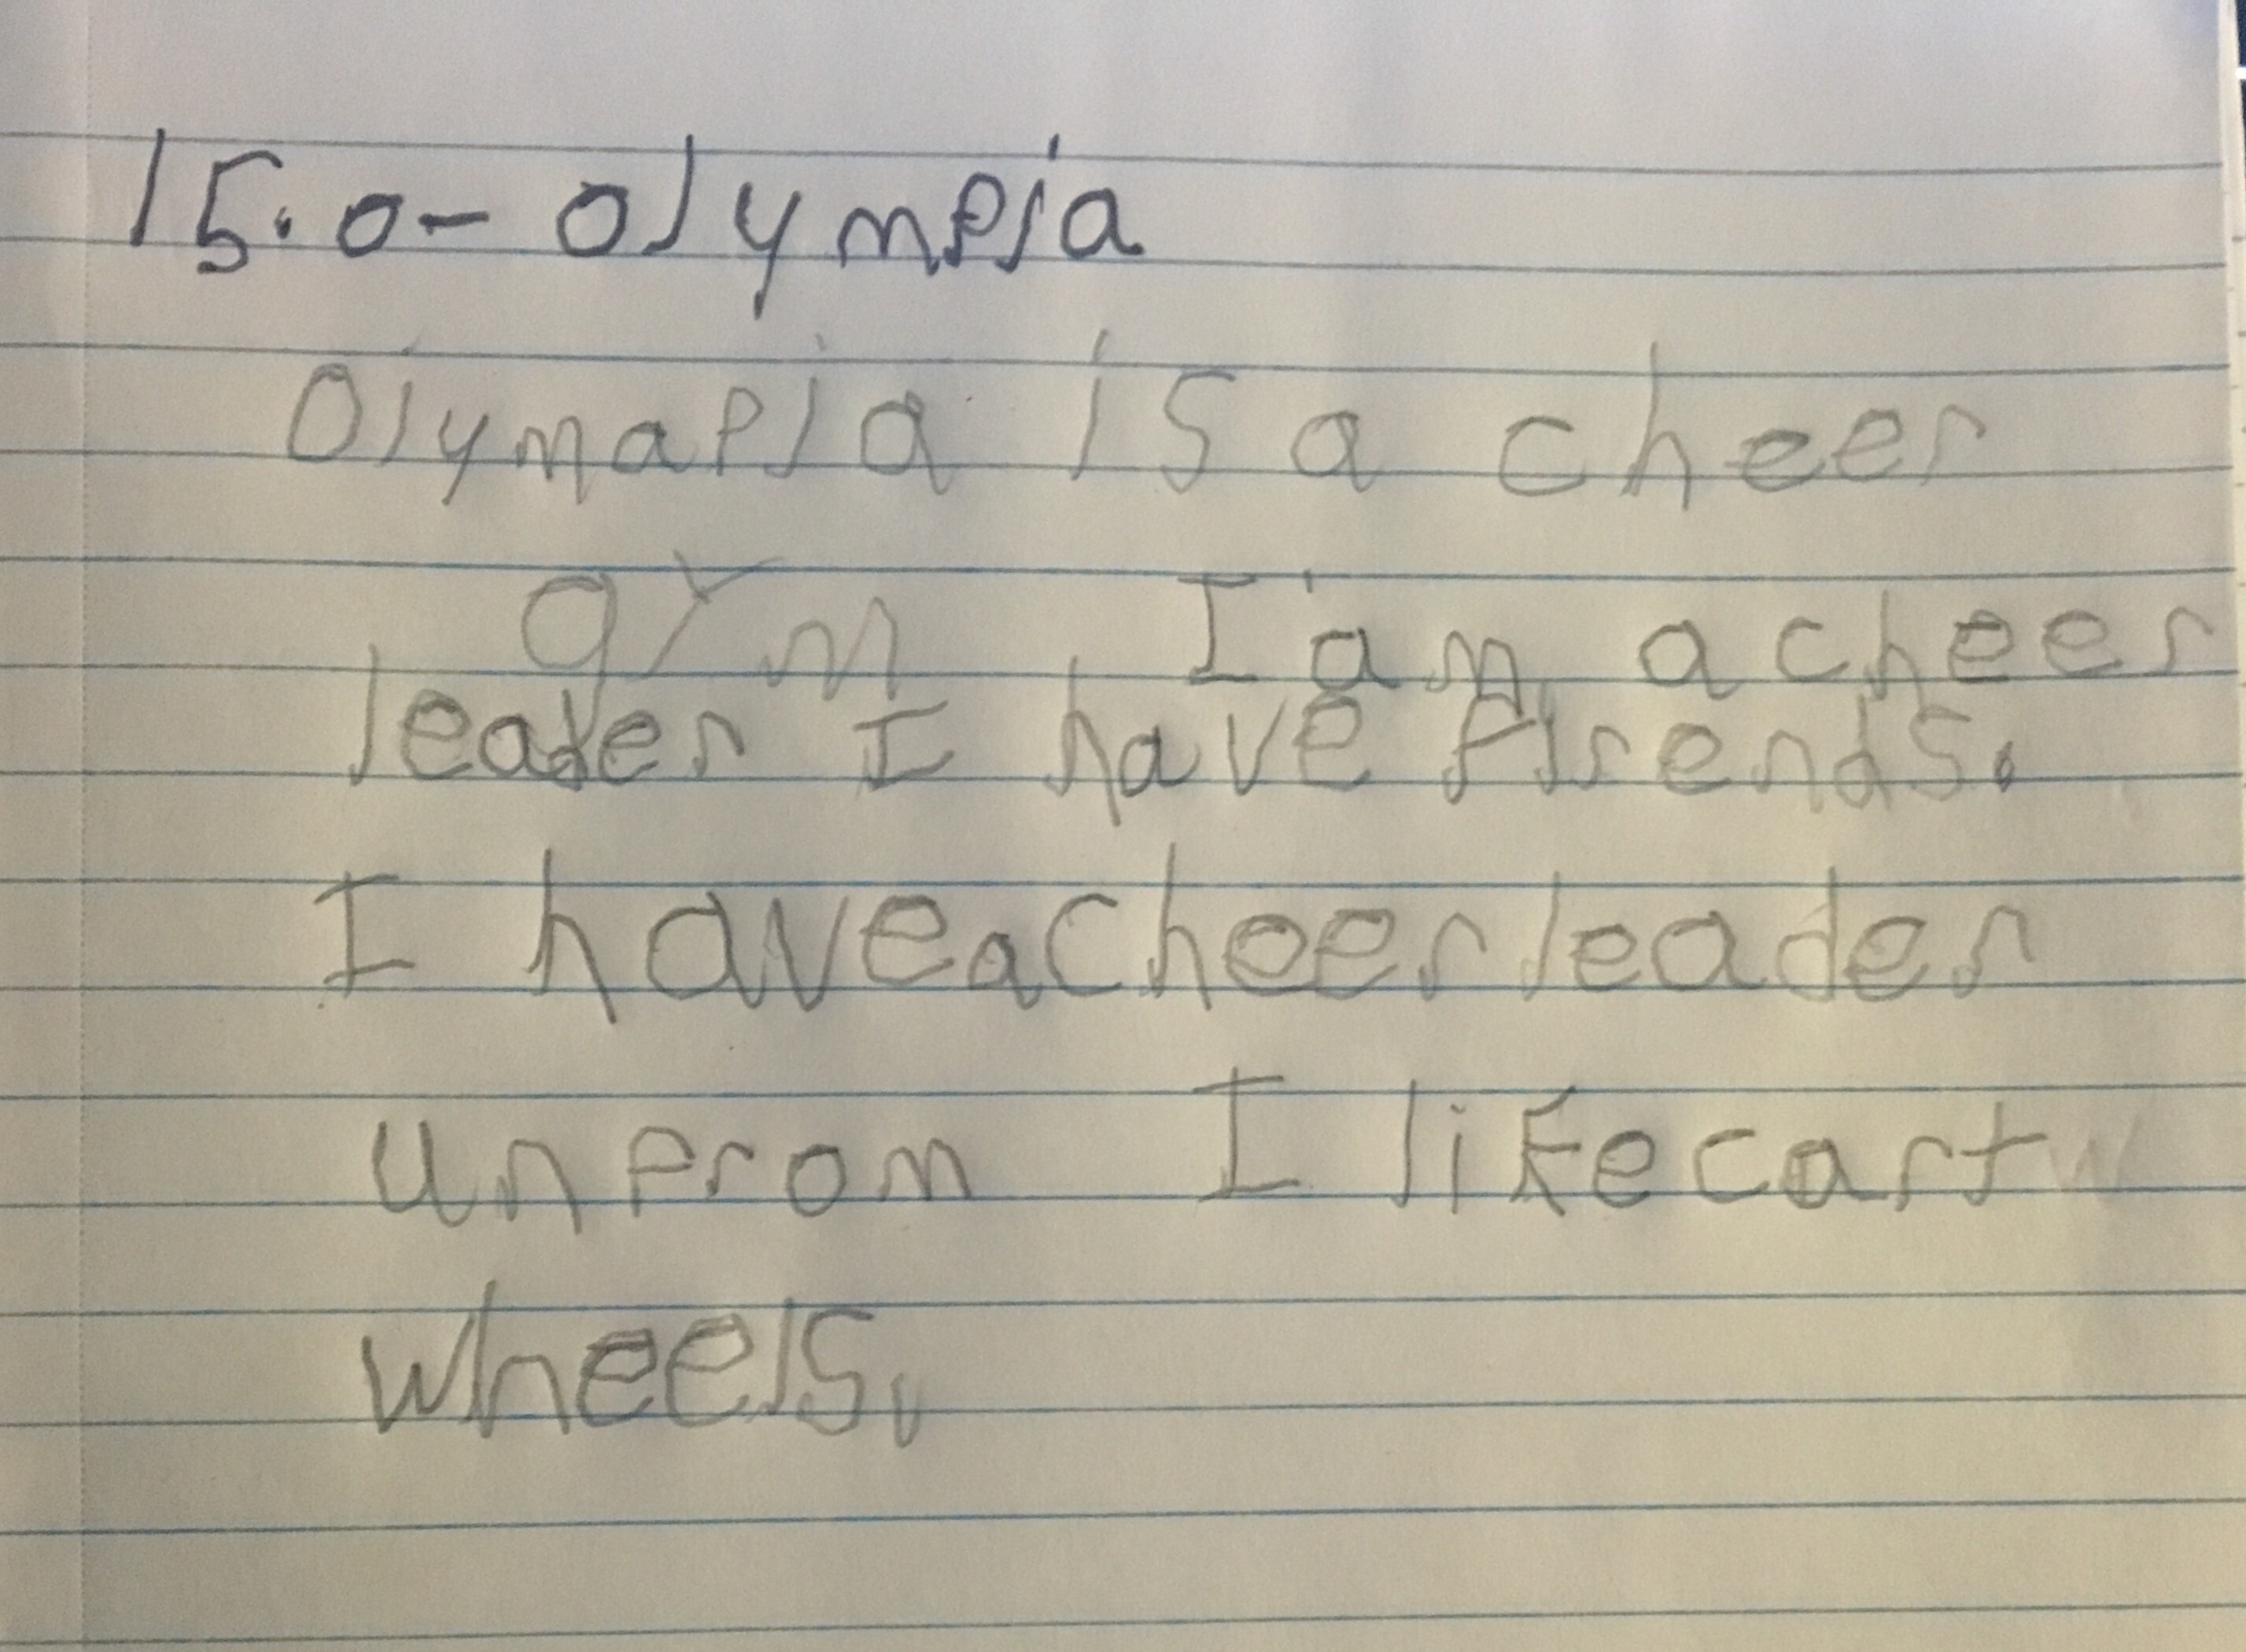 15.0- Olympia
Olymapia is a cheer
gym I am a cheer
leader I have firends.
I have a cheer leader
unfrom I like cart
wheels.